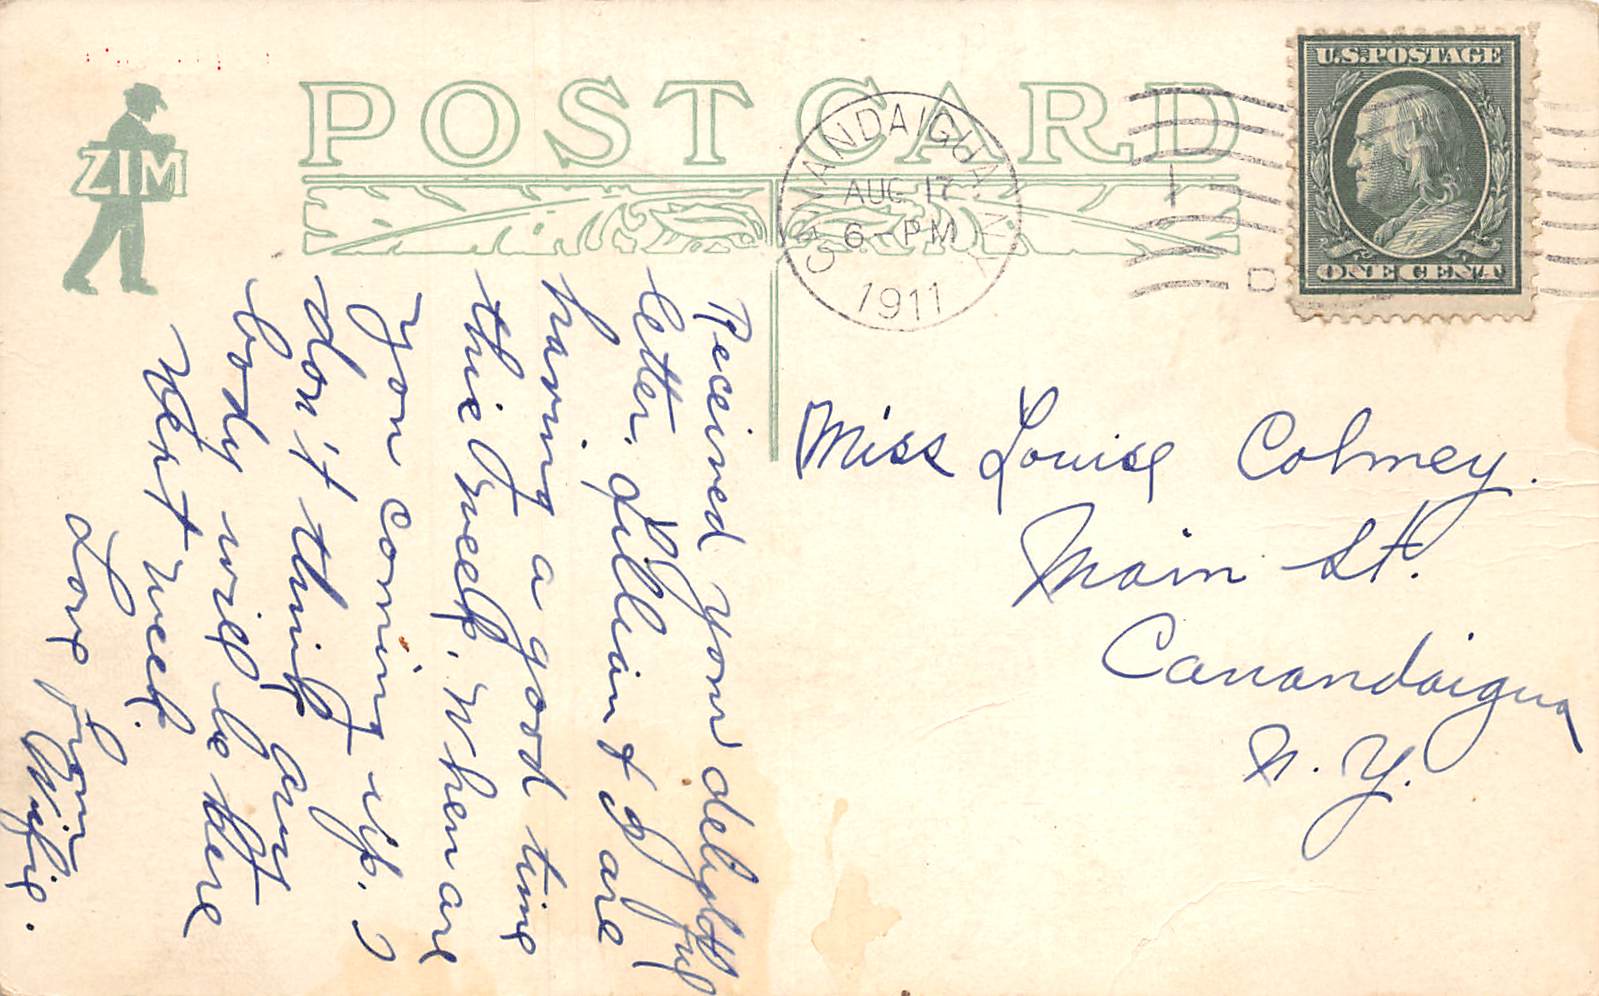 ZIM
POST CARD
CANANDAIGUA, N.Y.
AUG 17
6-PM
1911
D
U.S. POSTAGE
ONE CENT
Miss Louise Colmey.
Main St.
Canandaigua
N. Y.
Received your delightful
letter. Lillian & I are
having a good time
this week. When are
you coming up. I
don't think any
body will be here
next week.
Love from
Wifie.